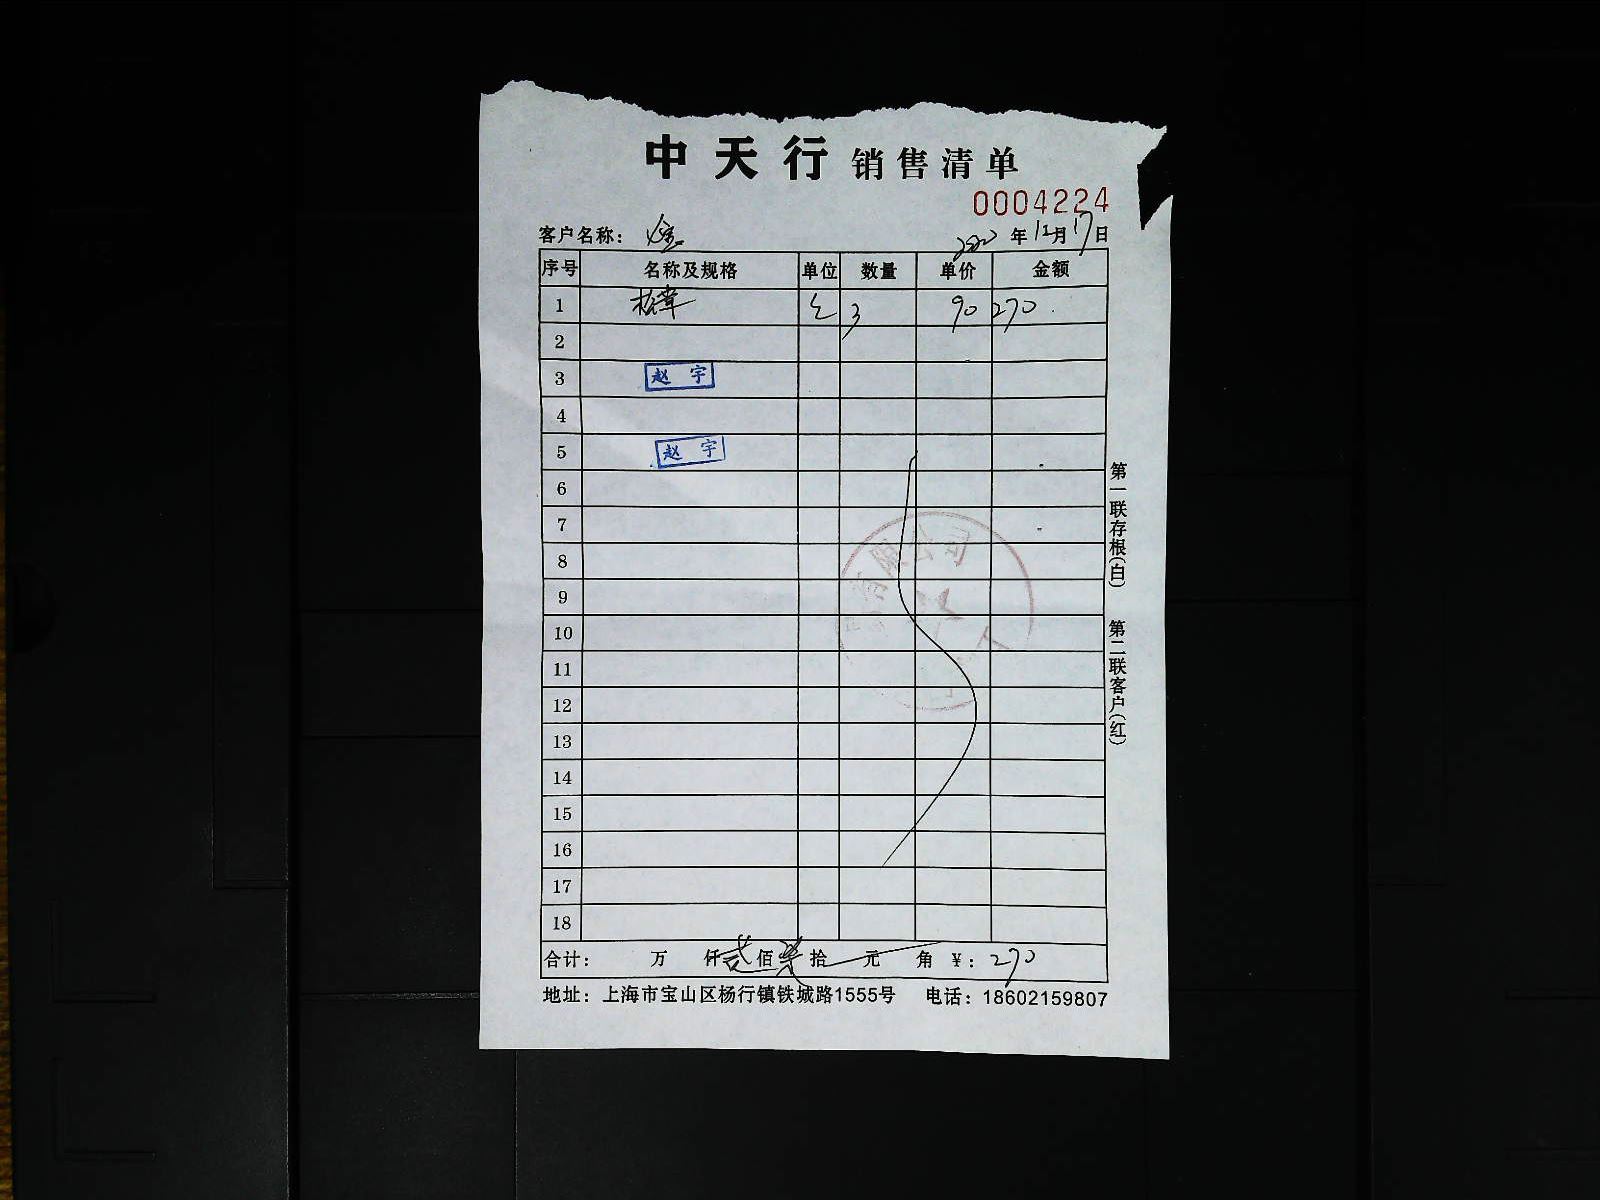 中天行 销售清单
0004224
客户名称： 年12月17日
序号 名称及规格 单位 数量 单价 金额
1 3 90 270
2
3 赵宇
4
5 赵宇
6
7
8
9
10
11
12
13
14
15
16
17
18
合计： 万 仟贰佰柒拾 元 角 ¥：270
地址：上海市宝山区杨行镇铁城路1555号 电话：18602159807
第一联存根(白) 第二联客户(红)
有限公司